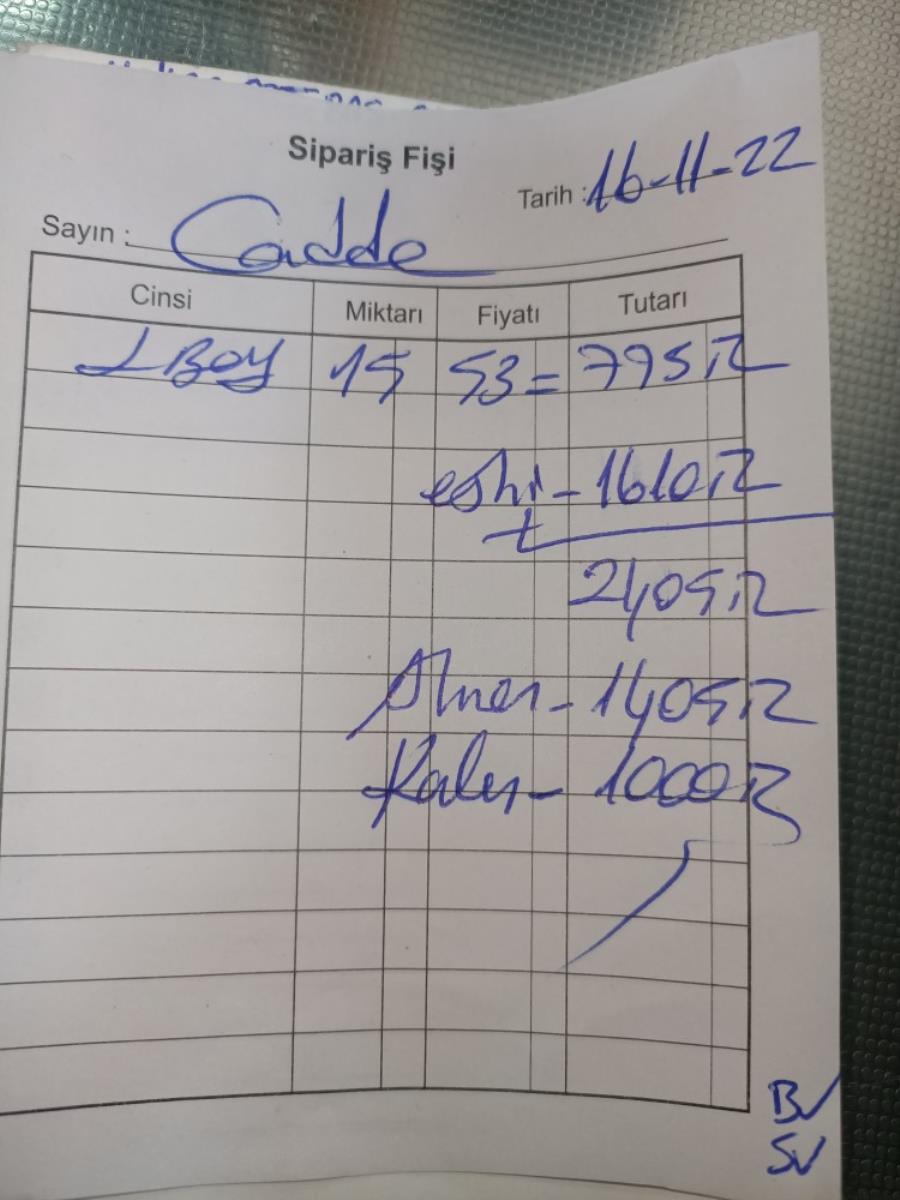 Sipariş Fişi
Tarih : 16-11-22
Sayın : Cadde
Cinsi Miktarı Fiyatı Tutarı
L Boy 15 53 = 795 TL
eski - 1610 TL
+
2405 TL
Alınan - 1405 TL
Kalan - 1000 TL
B✓
S✓